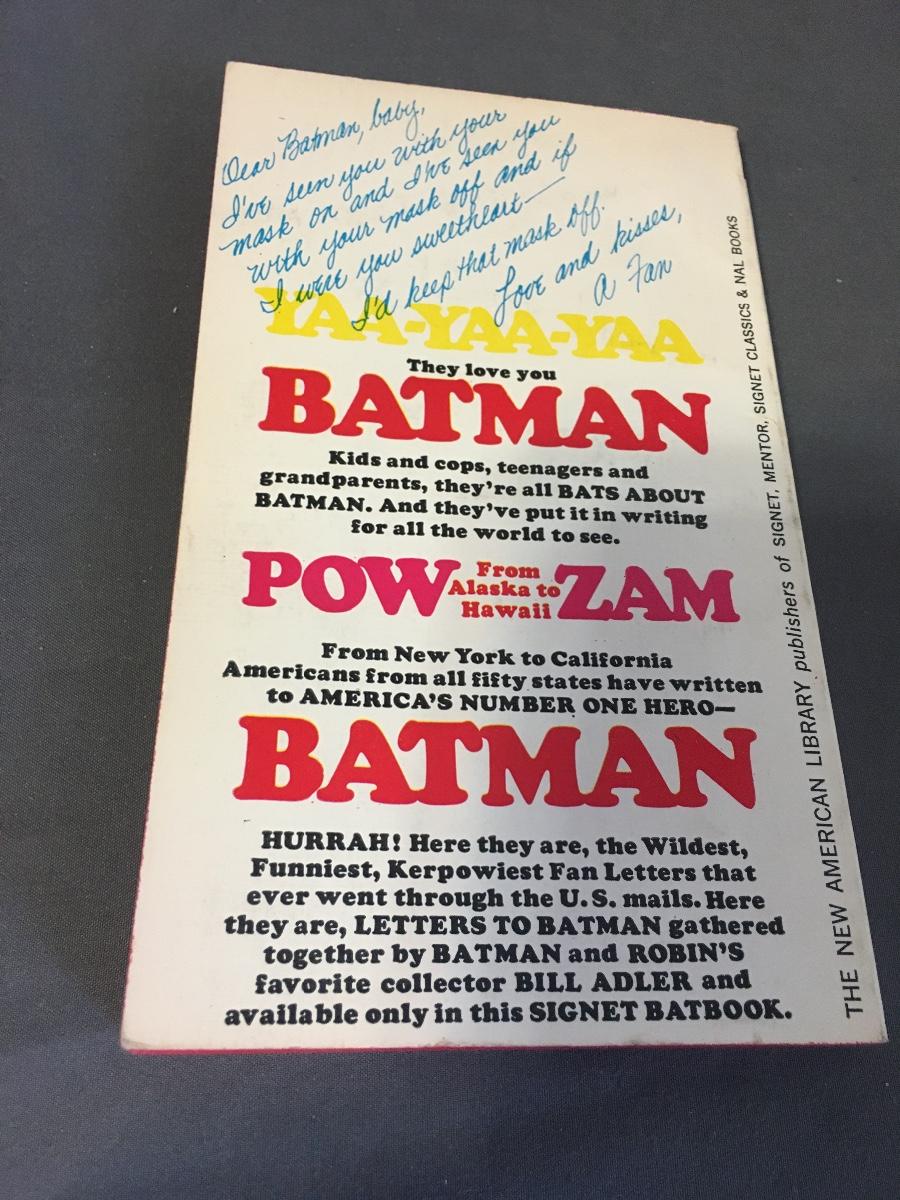 Dear Batman, baby,
I've seen you with your
mask on and I've seen you
with your mask off and if
I were you sweetheart—
I'd keep that mask off.
Love and kisses,
A Fan
YAA-YAA-YAA
They love you
BATMAN
Kids and cops, teenagers and
grandparents, they're all BATS ABOUT
BATMAN. And they've put it in writing
for all the world to see.
POW From Alaska to Hawaii ZAM
From New York to California
Americans from all fifty states have written
to AMERICA'S NUMBER ONE HERO—
BATMAN
HURRAH! Here they are, the Wildest,
Funniest, Kerpowiest Fan Letters that
ever went through the U.S. mails. Here
they are, LETTERS TO BATMAN gathered
together by BATMAN and ROBIN'S
favorite collector BILL ADLER and
available only in this SIGNET BATBOOK.
THE NEW AMERICAN LIBRARY publishers of SIGNET, MENTOR, SIGNET CLASSICS & NAL BOOKS